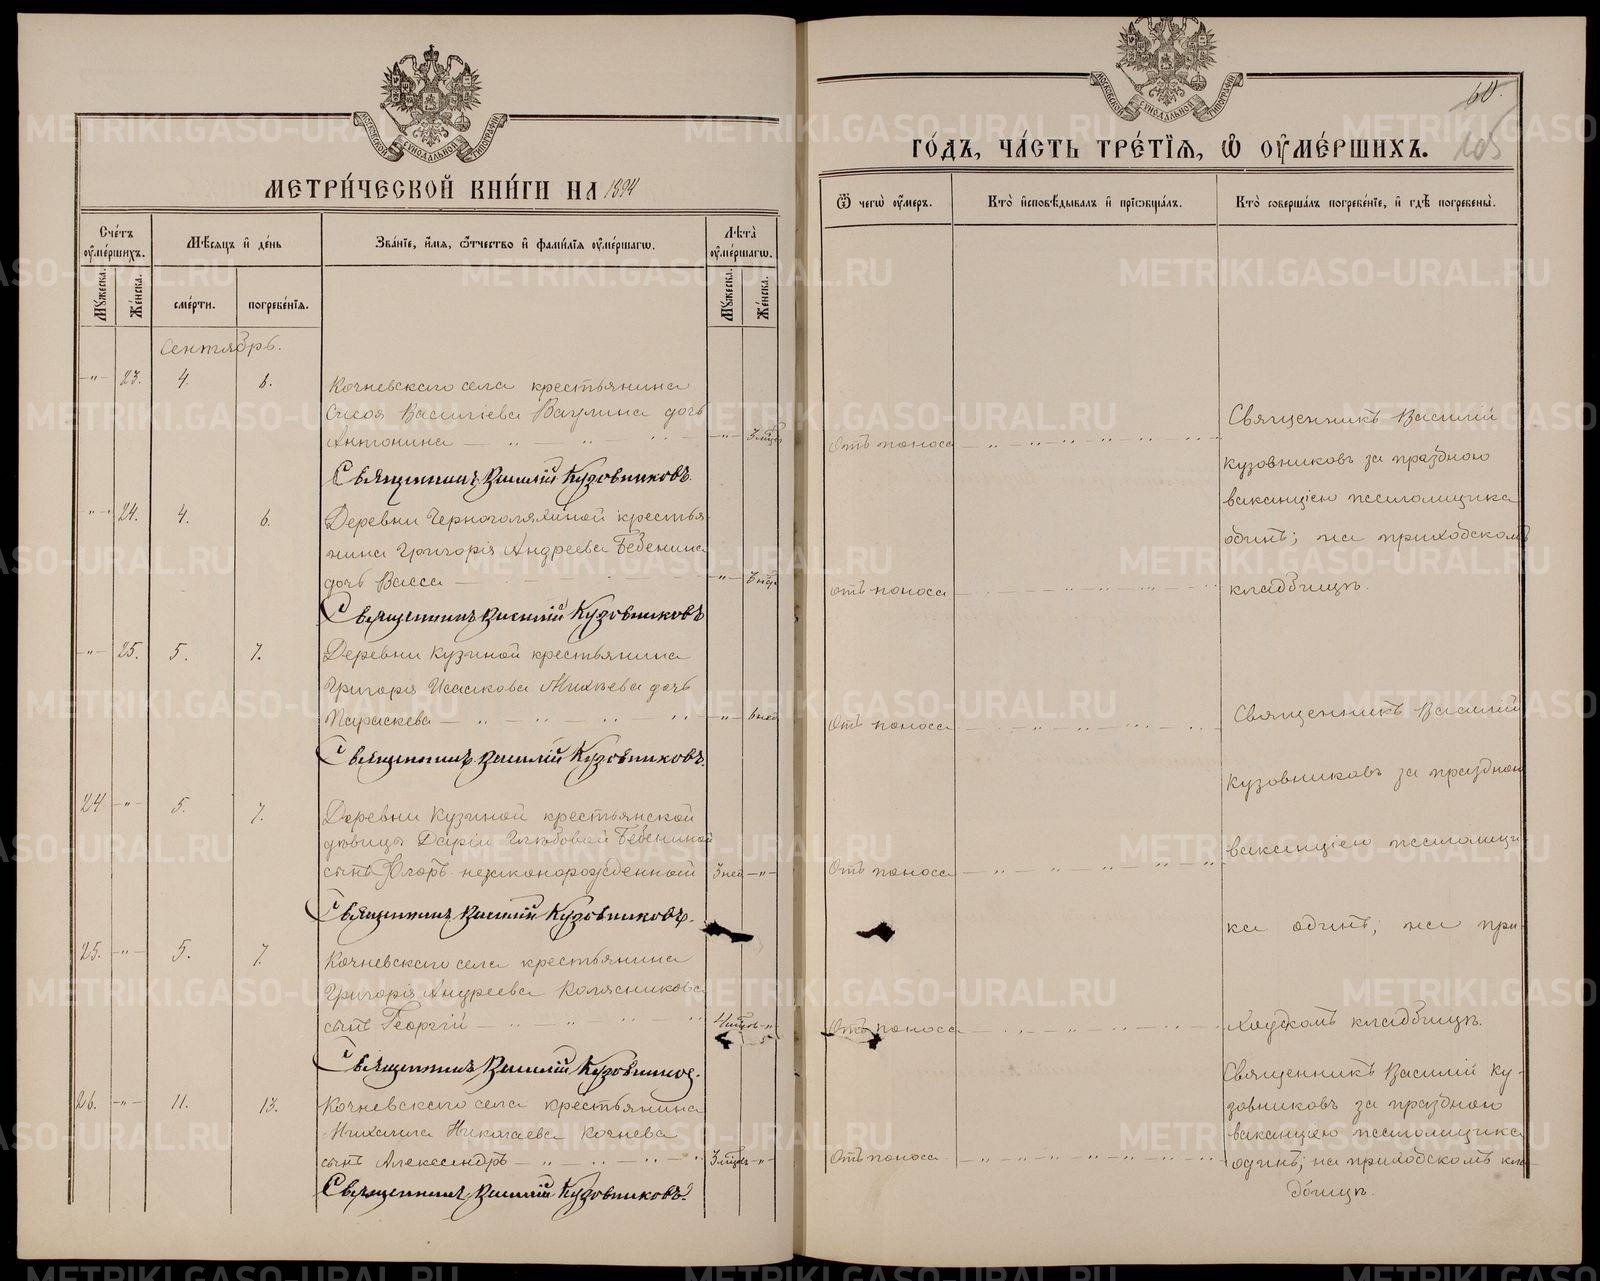 МЕТРИ́ЧЕСКОЙ КНИ́ГИ НА 1894
Сче́тъ ᲂу҆ме́ршихъ.
Мѣ́сяцъ и҆ де́нь
Зва́нїе, и҆́мя, ѻ҆́тчество и҆ фами́лїя ᲂу҆ме́ршагѡ.
Лѣ́та ᲂу҆ме́ршагѡ.
Мꙋ́жеска.
Же́нска.
сме́рти.
погребе́нїя.
Мꙋ́жеска.
Же́нска.
Сентябрь.
-"- 23. 4. 6. Кочневскаго села крестьянина
Сысоя Василіева Ваулина дочь
Антонина -"- 3 мѣс
Священникъ Василій Кузовниковъ.
-"- 24. 4. 6. Деревни Черноголяхиной крестья-
нина Григорія Андреева Бебенина
дочь Васса -"-
Священникъ Василій Кузовниковъ
-"- 25. 5. 7. Деревни Кузиной крестьянина
Григорія Исаакова Михѣева дочь
Параскева -"- 6 нед
Священникъ Василій Кузовниковъ.
24 -"- 5. 7. Деревни Кузиной крестьянской
дѣвицы Даріи Глѣбовой Бебениной
сынъ незаконорожденный 3 нед -"-
Священникъ Василій Кузовниковъ.
25. -"- 5. 7. Кочневскаго села крестьянина
Григорія Андреева Колясникова
сынъ Георгій 4 мѣс -"-
Священникъ Василій Кузовниковъ.
26. -"- 11. 13. Кочневскаго села крестьянина
Михаила Николаева Кочнева
сынъ Александръ 3 мѣс -"-
Священникъ Василій Кузовниковъ.
60.
105
ГО́ДЪ, ЧА́СТЬ ТРЕ́ТЇЯ, Ѡ҆ ОУ҆МЕ́РШИХЪ.
Ѿ чегѡ̀ ᲂу҆́меръ.
Кто̀ и҆сповѣ́дывалъ и҆ прїѡбща́лъ.
Кто̀ соверша́лъ погребе́нїе, и҆ гдѣ̀ погребены̀.
Отъ поноса
Священникъ Василій
Кузовниковъ за праздною
вакансіею псаломщика
одинъ; на приходскомъ
отъ поноса
кладбищѣ.
Отъ поноса
Священникъ Василій
Кузовниковъ за праздною
вакансіею псаломщи-
Отъ поноса
ка одинъ, на при-
Отъ поноса
ходскомъ кладбищѣ.
Священникъ Василій Ку-
зовниковъ за праздною
вакансіею псаломщика
Отъ поноса
одинъ; на приходскомъ кла-
дбищѣ.
METRIKI.GASO-URAL.RU